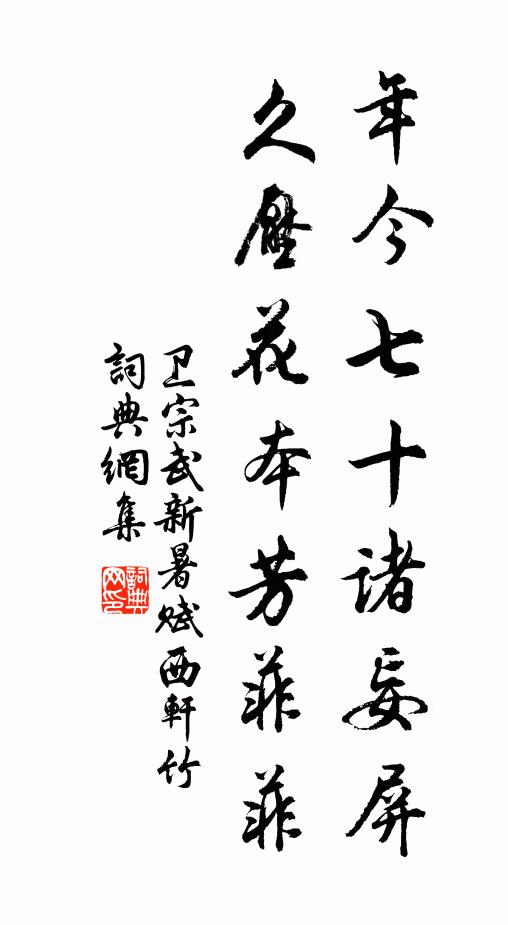 年今七十諸妄屏
久壓花本芳菲菲
卫宗武新暑赋西軒竹
詞典網集
詞典
网印